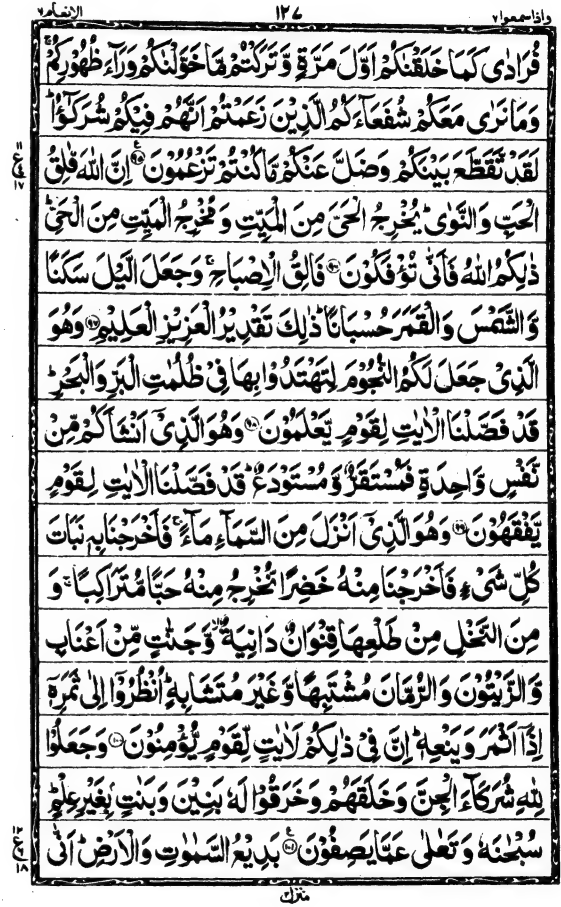 واذاسمعوا۷ ۱۲۷ الانعام۶
فُرَادٰى كَمَا خَلَقْنٰكُمْ اَوَّلَ مَرَّةٍ وَّتَرَكْتُمْ مَّا خَوَّلْنٰكُمْ وَرَآءَ ظُهُوْرِكُمْ ۚ
وَمَا نَرٰى مَعَكُمْ شُفَعَآءَكُمُ الَّذِيْنَ زَعَمْتُمْ اَنَّهُمْ فِيْكُمْ شُرَكٰٓؤُا ؕ
لَقَدْ تَّقَطَّعَ بَيْنَكُمْ وَضَلَّ عَنْكُمْ مَّا كُنْتُمْ تَزْعُمُوْنَ ۝ اِنَّ اللّٰهَ فَالِقُ
الْحَبِّ وَالنَّوٰى ؕ يُخْرِجُ الْحَىَّ مِنَ الْمَيِّتِ وَمُخْرِجُ الْمَيِّتِ مِنَ الْحَىِّ ؕ
ذٰلِكُمُ اللّٰهُ فَاَنّٰى تُؤْفَكُوْنَ ۝ فَالِقُ الْاِصْبَاحِ ۚ وَجَعَلَ الَّيْلَ سَكَنًا
وَّالشَّمْسَ وَالْقَمَرَ حُسْبَانًا ؕ ذٰلِكَ تَقْدِيْرُ الْعَزِيْزِ الْعَلِيْمِ ۝ وَهُوَ
الَّذِىْ جَعَلَ لَكُمُ النُّجُوْمَ لِتَهْتَدُوْا بِهَا فِىْ ظُلُمٰتِ الْبَرِّ وَالْبَحْرِ ؕ
قَدْ فَصَّلْنَا الْاٰيٰتِ لِقَوْمٍ يَّعْلَمُوْنَ ۝ وَهُوَ الَّذِىْٓ اَنْشَاَكُمْ مِّنْ
نَّفْسٍ وَّاحِدَةٍ فَمُسْتَقَرٌّ وَّمُسْتَوْدَعٌ ؕ قَدْ فَصَّلْنَا الْاٰيٰتِ لِقَوْمٍ
يَّفْقَهُوْنَ ۝ وَهُوَ الَّذِىْٓ اَنْزَلَ مِنَ السَّمَآءِ مَآءً ۚ فَاَخْرَجْنَا بِهٖ نَبَاتَ
كُلِّ شَىْءٍ فَاَخْرَجْنَا مِنْهُ خَضِرًا نُّخْرِجُ مِنْهُ حَبًّا مُّتَرَاكِبًا ۚ وَ
مِنَ النَّخْلِ مِنْ طَلْعِهَا قِنْوَانٌ دَانِيَةٌ ۙ وَّجَنّٰتٍ مِّنْ اَعْنَابٍ
وَّالزَّيْتُوْنَ وَالرُّمَّانَ مُشْتَبِهًا وَّغَيْرَ مُتَشَابِهٍ ؕ اُنْظُرُوْٓا اِلٰى ثَمَرِهٖٓ
اِذَآ اَثْمَرَ وَيَنْعِهٖ ؕ اِنَّ فِىْ ذٰلِكُمْ لَاٰيٰتٍ لِّقَوْمٍ يُّؤْمِنُوْنَ ۝ وَجَعَلُوْا
لِلّٰهِ شُرَكَآءَ الْجِنَّ وَخَلَقَهُمْ وَخَرَقُوْا لَهٗ بَنِيْنَ وَبَنٰتٍۭ بِغَيْرِ عِلْمٍ ؕ
سُبْحٰنَهٗ وَتَعٰلٰى عَمَّا يَصِفُوْنَ ۝ بَدِيْعُ السَّمٰوٰتِ وَالْاَرْضِ ؕ اَنّٰى
منزل